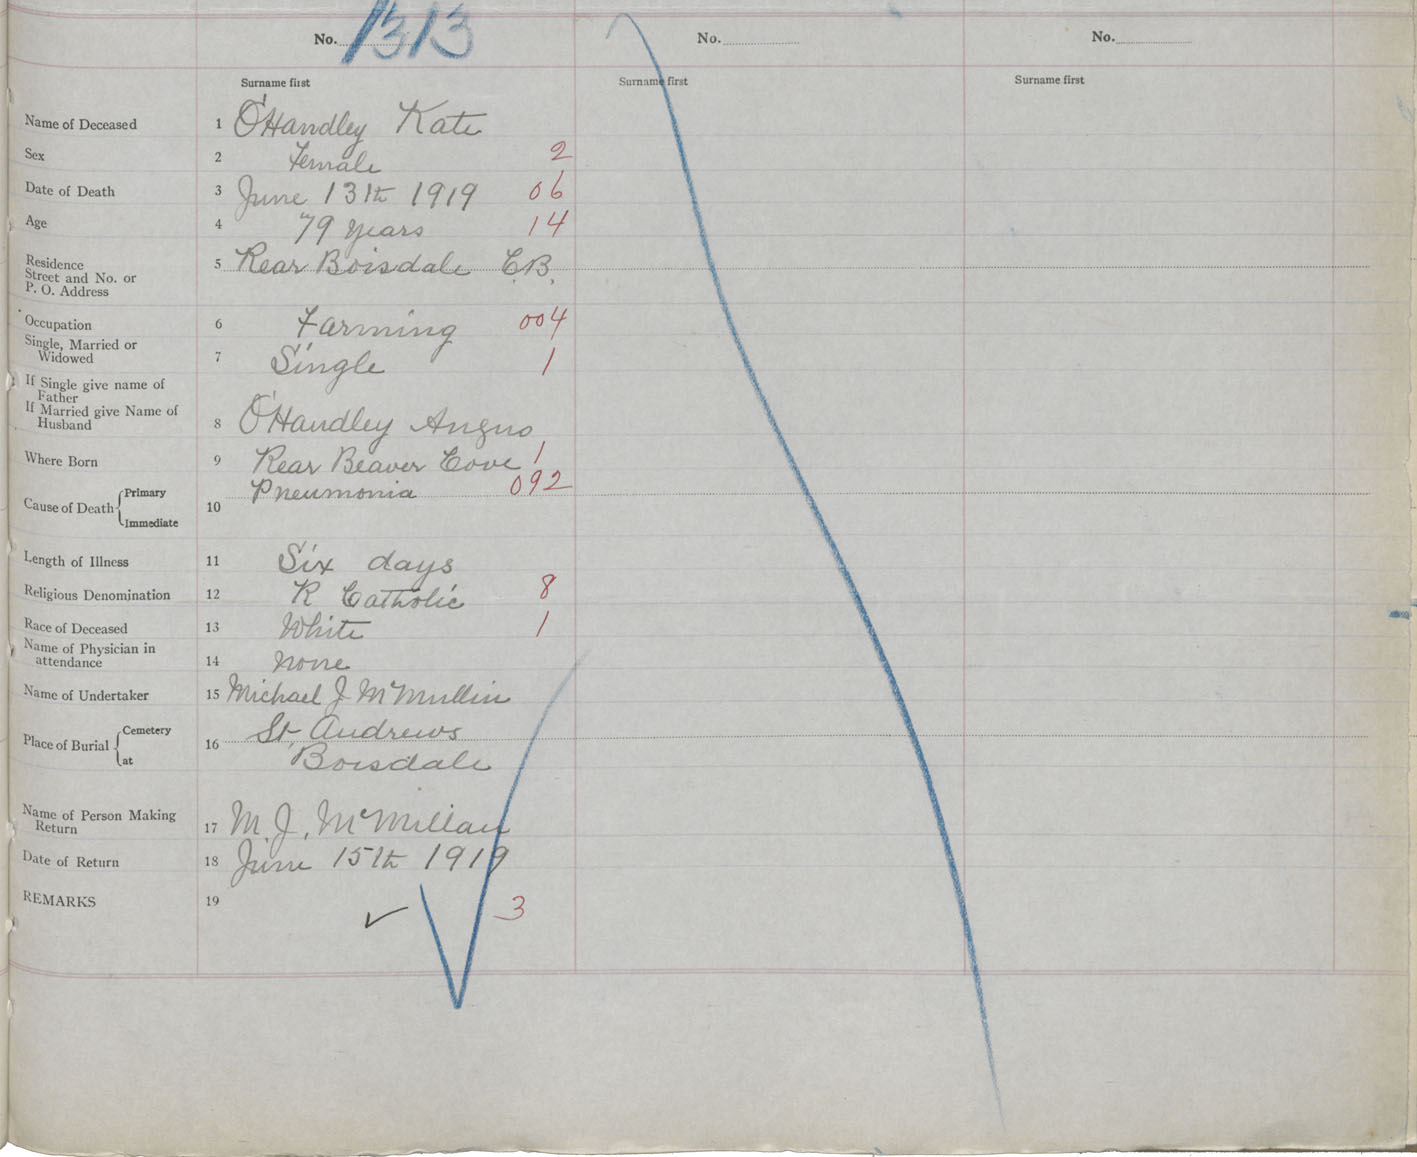 No. 1313 No. No.
Surname first Surname first Surname first
Name of Deceased 1 O'Handley Kate
Sex 2 Female 2
Date of Death 3 June 13th 1919 06
Age 4 79 years 14
Residence
Street and No. or
P. O. Address
5 Rear Boisdale C.B.
Occupation 6 Farming 004
Single, Married or
Widowed
7 Single 1
If Single give name of
Father
If Married give Name of
Husband
8 O'Handley Angus
Where Born 9 Rear Beaver Cove 1
Cause of Death Primary
Immediate
10 Pneumonia 092
Length of Illness 11 Six days
Religious Denomination 12 R Catholic 8
Race of Deceased 13 White 1
Name of Physician in
attendance
14 none
Name of Undertaker 15 Michael J McMullin
Place of Burial Cemetery
at
16 St Andrews
Boisdale
Name of Person Making
Return
17 M. J. McMillan
Date of Return 18 June 15th 1919
REMARKS 19 3